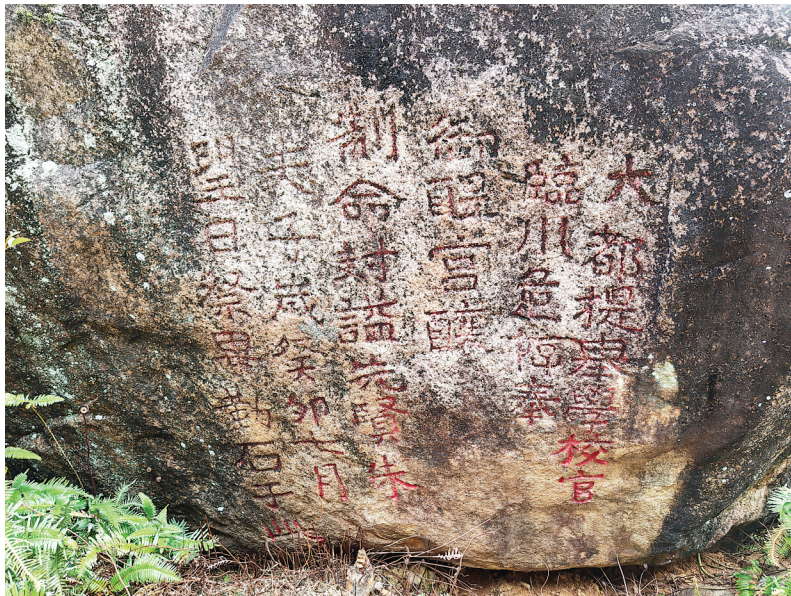 大都提舉學校官
臨川危奉
御宮醞
制命封誥先賢朱
夫子歲癸卯七月
望日祭畢勒石于此